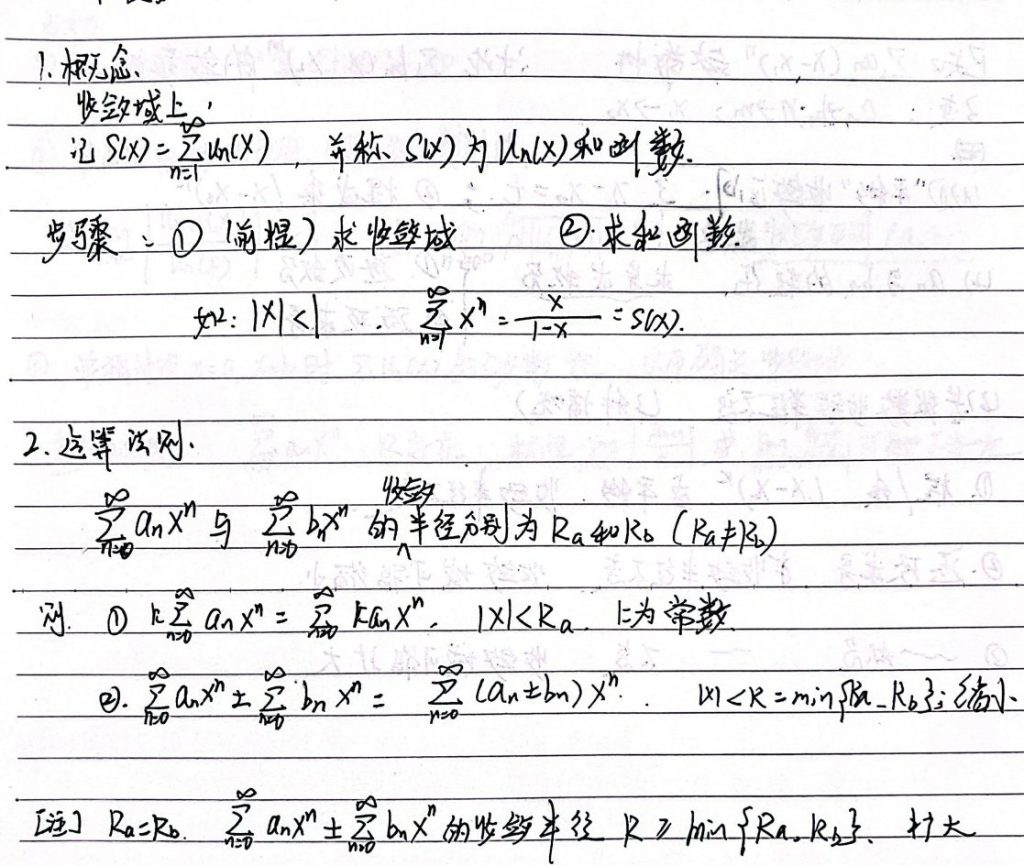 1. 概念.
收敛域上,
记 S(x) = \sum_{n=1}^{∞} u_n(x) , 并称 S(x) 为 u_n(x) 和函数.
步骤: ① (前提) 求收敛域 ②. 求和函数.
如: |x|<1 . \sum_{n=1}^{∞} x^n = \frac{x}{1-x} = S(x).
2. 运算法则.
\sum_{n=0}^{∞} a_n x^n 与 \sum_{n=0}^{∞} b_n x^n 的收敛半径分别为 R_a 和 R_b (R_a≠R_b)
则. ① k\sum_{n=0}^{∞} a_n x^n = \sum_{n=0}^{∞} k a_n x^n. |x|<R_a. k为常数.
②. \sum_{n=0}^{∞} a_n x^n ± \sum_{n=0}^{∞} b_n x^n = \sum_{n=0}^{∞} (a_n ± b_n) x^n. |x|<R = min{R_a, R_b}; 缩小.
[注] R_a=R_b. \sum_{n=0}^{∞} a_n x^n ± \sum_{n=0}^{∞} b_n x^n 的收敛半径 R ≥ min{R_a, R_b}. 扩大